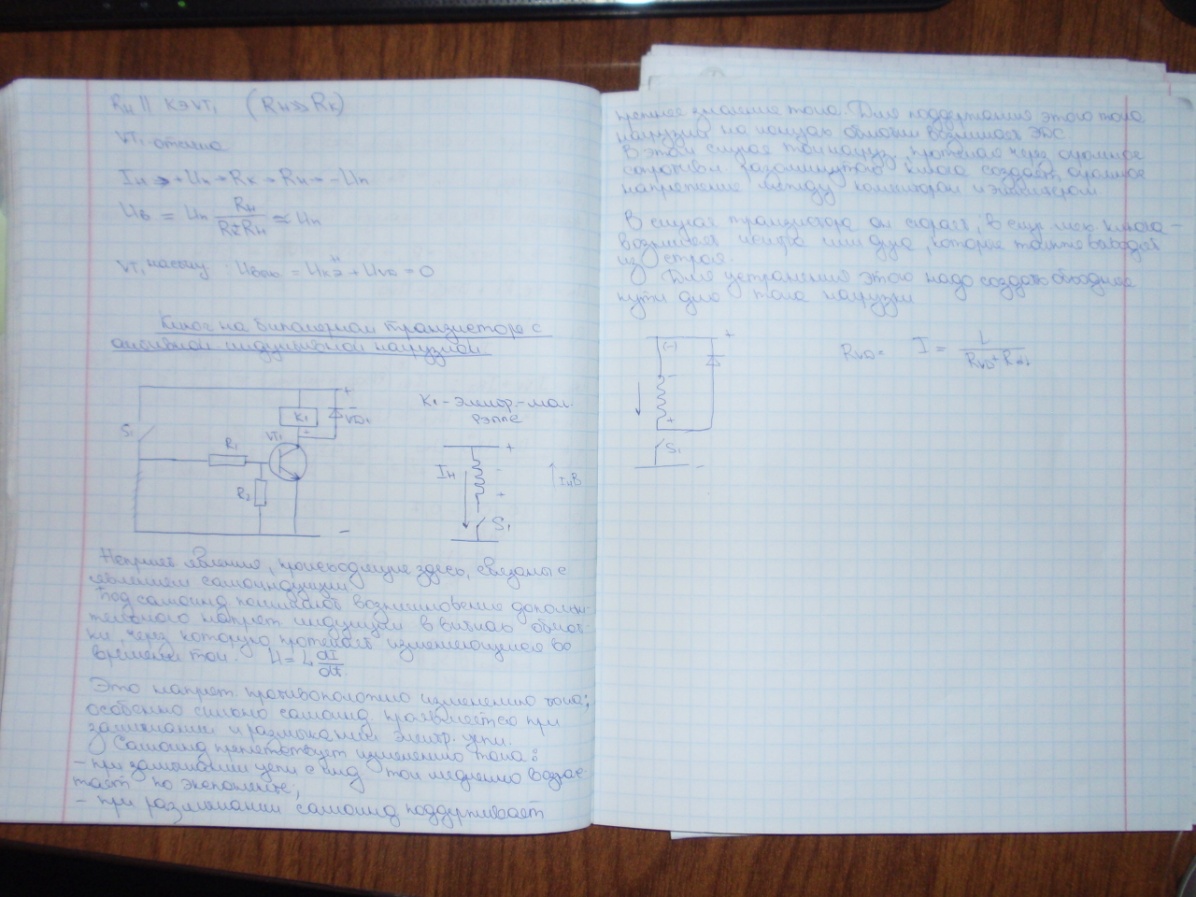 Rн || КЭ VT₁ (Rн >> Rк)
VT₁ отсечка
Iн → +Uп → Rк → Rн → -Uп
Uв = Uп Rн / Rк+Rн ≃ Uп
VT₁ насыщ : Uвых = Uкэн + = 0
Ключ на биполярном транзисторе с
индуктивной нагрузкой.
+
K₁
-
VD₁
S₁
R₁
VT₁
R₂
-
K₁ - электр-маг.
реле
+
Iн
-
+
S₁
Неприят явления, происходящие здесь, связаны с
явлением самоиндукции
Под самоинд понимают возникновение дополни-
тельного напряж индукции в витках обмот-
ки, через которую протекает изменяющийся во
времени ток. U = L dI/dt
Это напряж. противоположно изменению тока;
особенно сильно самоинд проявляется при
замыкании и размыкании электр. цепи.
Самоинд препятствует изменению тока:
- при замыкании цепи с инд ток медленно возрас
тает по экспоненте,
- при размыкании самоинд поддерживает
прежнее значение тока. Для поддержания этого тока
нагрузки на концах обмотки возникает ЭДС
В этом случае ток нагруз, протекая через огромное
сопротивл разомкнутого ключа создаёт огромное
напряжение между коллектором и эмиттером
В случае транзистора он сгорает, в случ мех ключа -
возникает искра или дуга, которые также выводят
из строя.
Для устранения этого надо создать обходные
пути для тока нагрузки
+
(-)
-
+
S₁
-
RVD= I = L / RVD+R